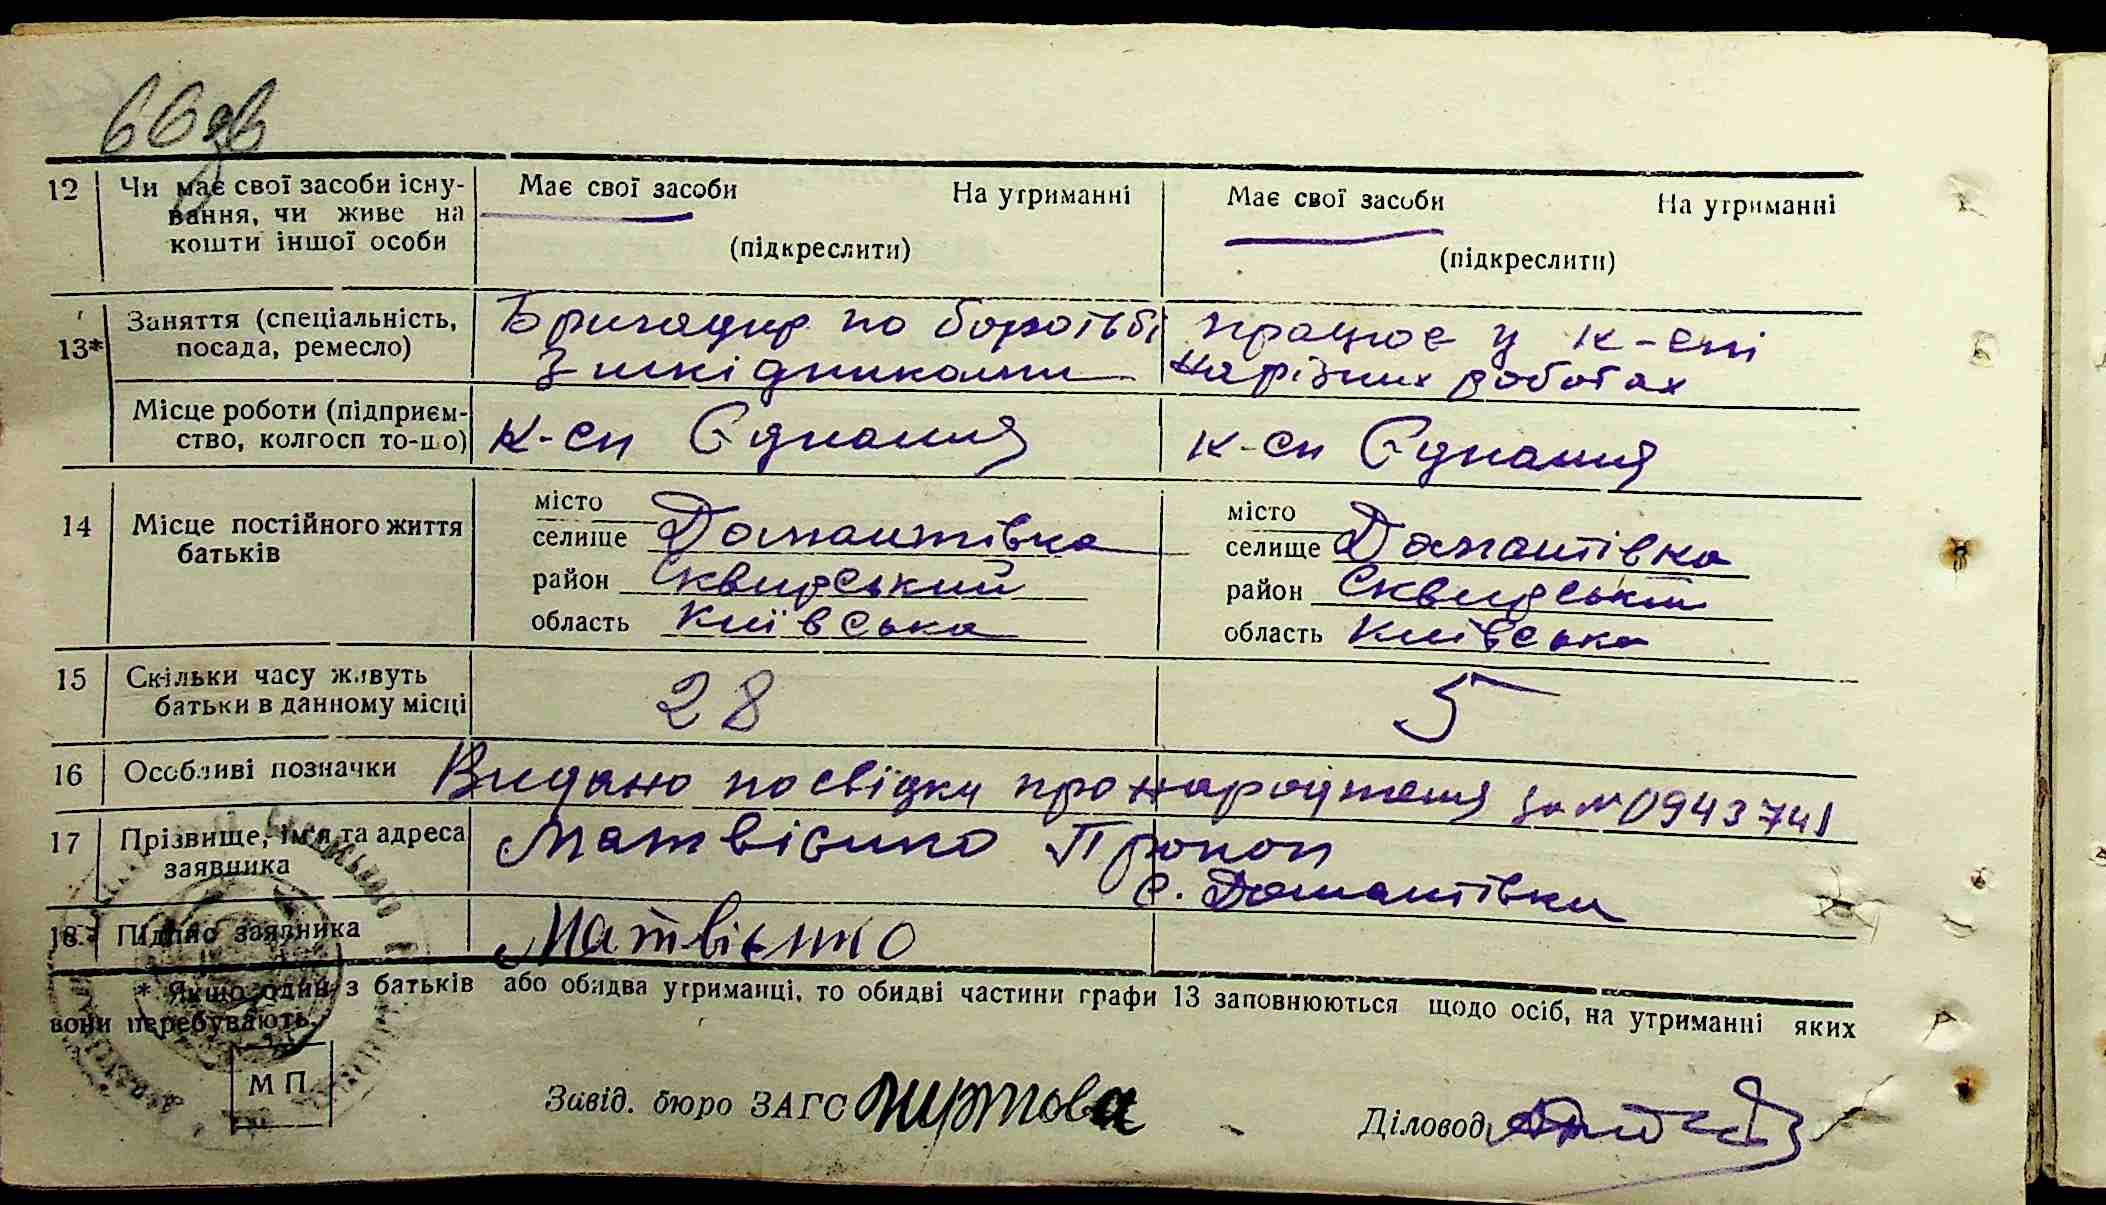 66зв
12 Чи має свої засоби існу- Має свої засоби На утриманні Має свої засоби На утриманні
вання, чи живе на
кошти іншої особи (підкреслити) (підкреслити)
13* Заняття (спеціальність, Бригадир по боротьбі працює у к-спі
посада, ремесло) з шкідниками на різних роботах
Місце роботи (підприєм-
ство, колгосп то-що) к-сп Єднання к-сп Єднання
14 Місце постійного життя місто місто
батьків селище Домантівка селище Домантівка
район Сквирський район Сквирський
область Київська область Київська
15 Скільки часу живуть 28 5
батьки в данному місці
16 Особливі позначки Видано посвідку про народження за № 0943741
17 Прізвище, ім'я та адреса Матвієнко Прокоп
заявника с. Домантівка
18. Підпис заявника Матвієнко
* Якщо один з батьків або обидва утриманці, то обидві частини графи 13 заповнюються щодо осіб, на утриманні яких
вони перебувають.
М П
Завід. бюро ЗАГС
Діловод